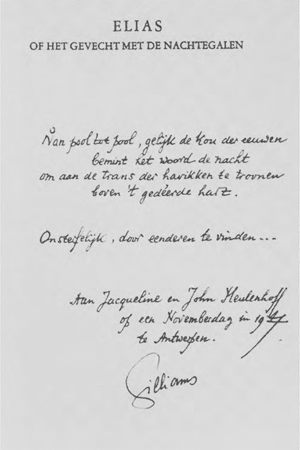 ELIAS
OF HET GEVECHT MET DE NACHTEGALEN
Van pool tot pool, gelijk de kou der eeuwen
bemint het woord de nacht
om aan de trans der havikken te troonen
boven 't gedeerde hart.
Onsterfelijk, door eenderen te vinden...
Aan Jacqueline en John Meulenhoff
op een Novemberdag in
te Antwerpen.
Gilliams